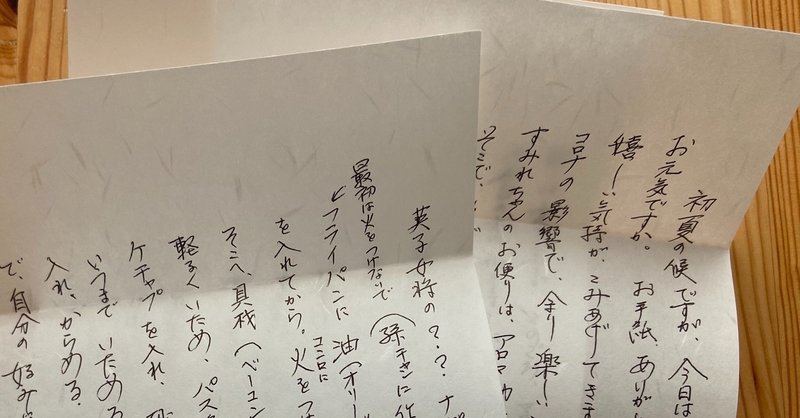 初夏の候ですが、今日は
お元気ですか。お手紙、ありがし
嬉しい気持が、こみあげてきま
コロナの影響で、余り楽しい
すみれちゃんのお便りは、アロマカ
そこで、
英子女将の???ナポ
(孫チャンに作
最初は火をつけないで
↙フライパンに油(オリー
を入れてから。コンロに火をつけ
そこへ、具材(ベーコン
軽るくいため、パス
ケチャプを入れ、
いつまでいためる
入れ、からめる。
で、自分の好み